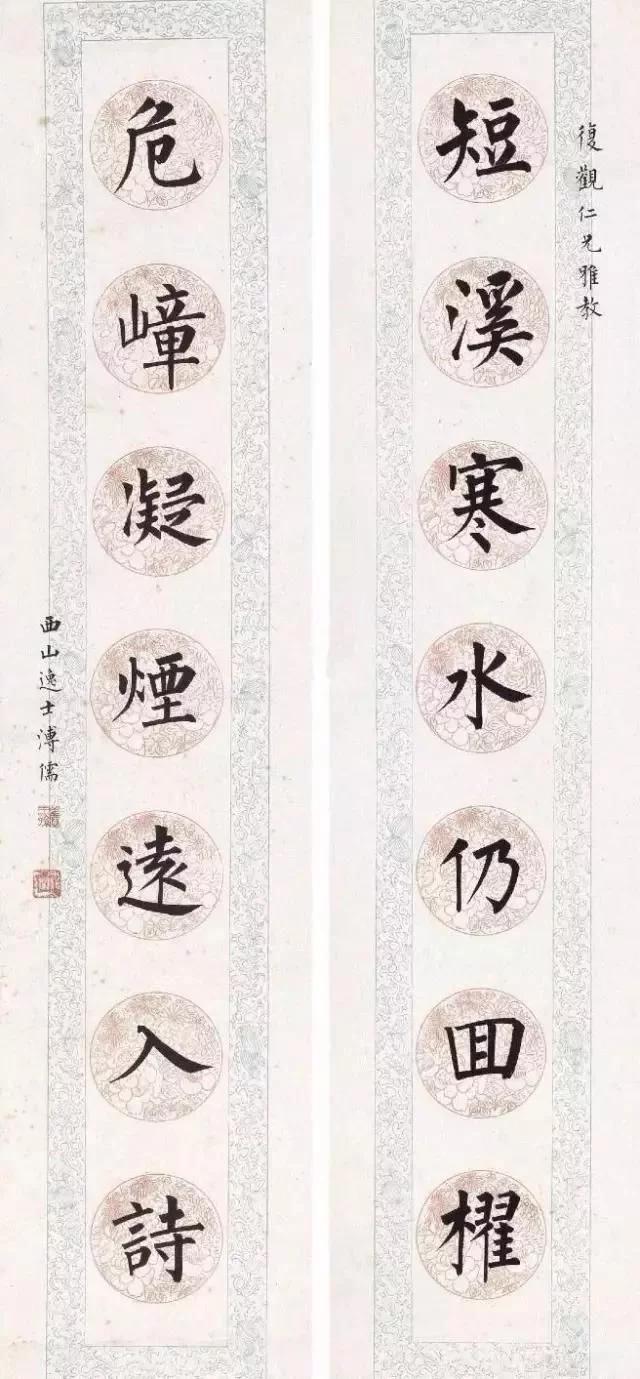 復觀仁兄雅教
短溪寒水仍囬櫂
危嶂凝煙遠入詩
西山逸士溥儒